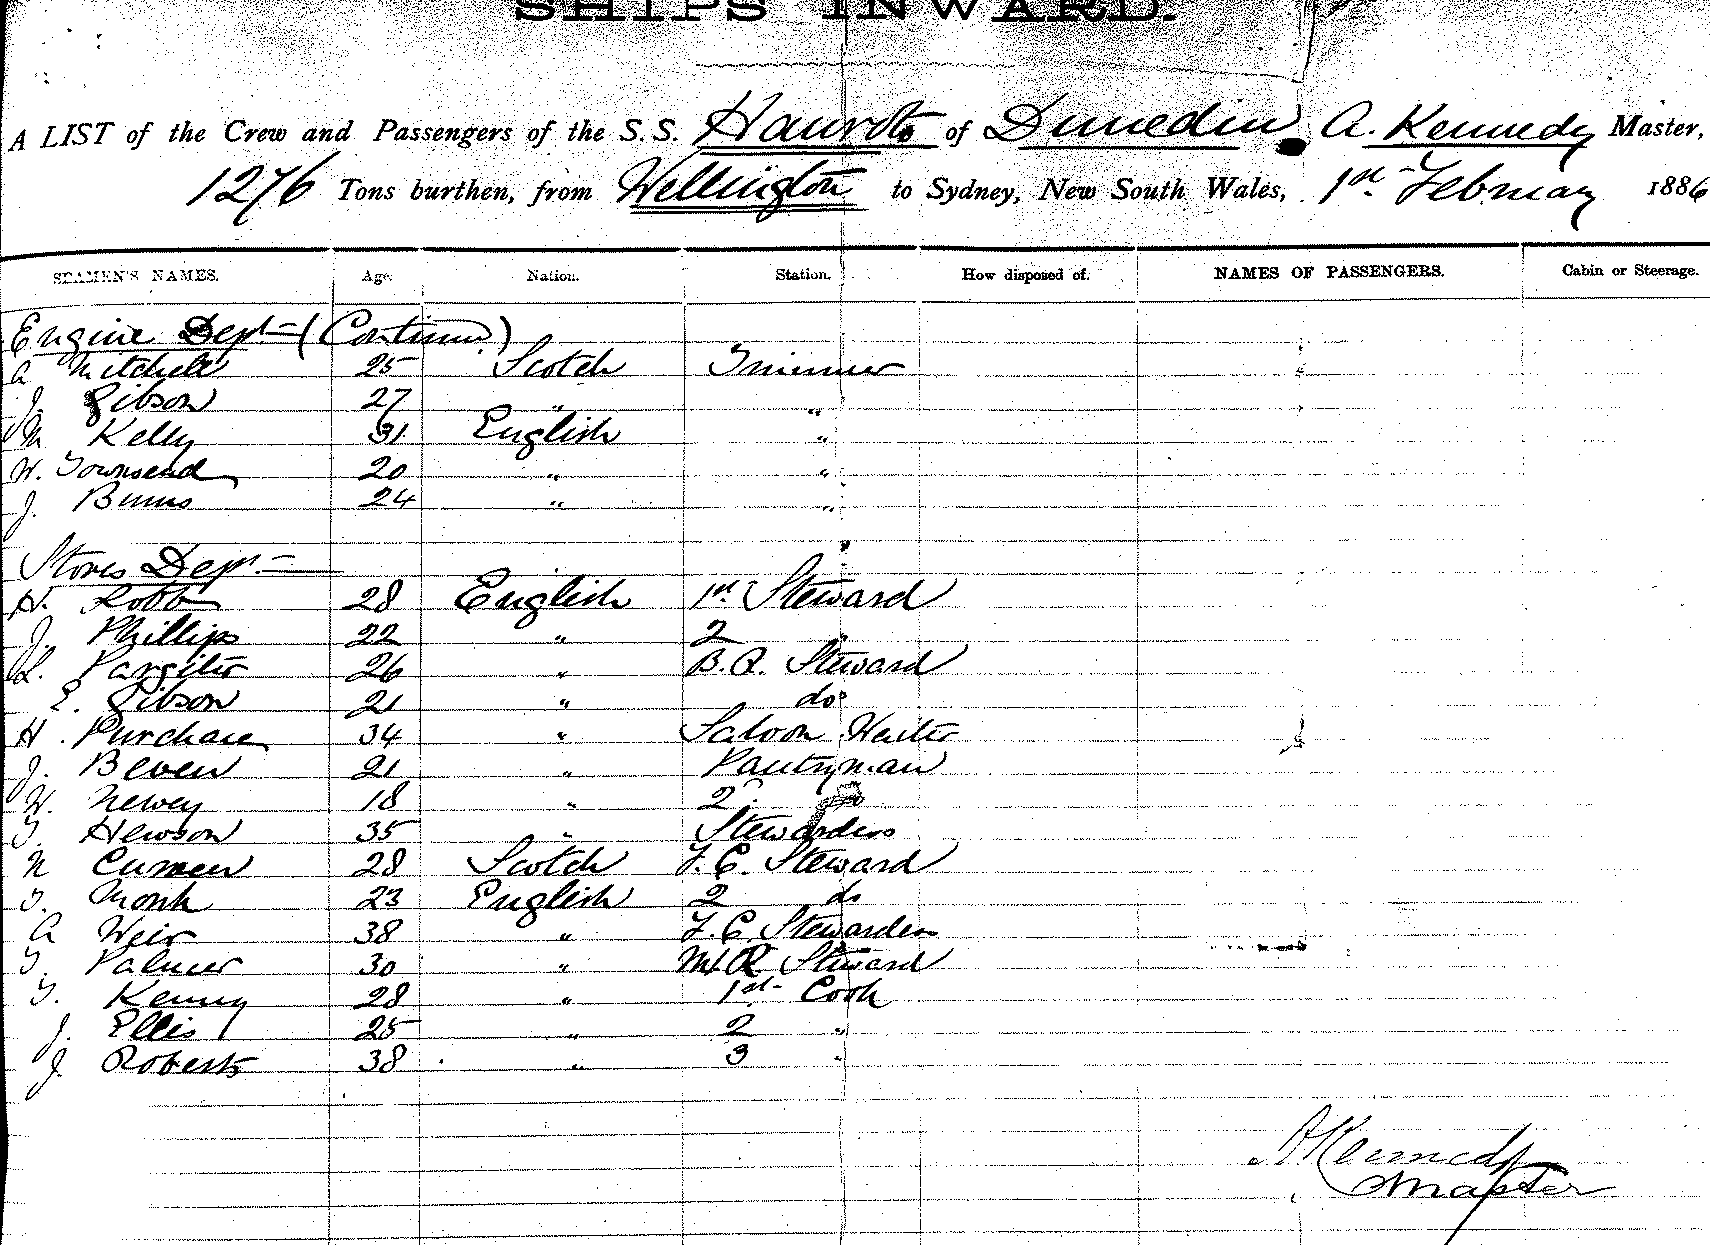 SHIPS INWARD.
A LIST of the Crew and Passengers of the S.S. Hauroto of Dunedin, A. Kennedy Master,
1276 Tons burthen, from Wellington to Sydney, New South Wales, 1st February 1886
SEAMEN'S NAMES. Age. Nation. Station. How disposed of. NAMES OF PASSENGERS. Cabin or Steerage.
Engine Dept (Continu)
A Mitchell 25 Scotch Trimmer
J. Gibson 27 " "
M Kelly 31 English "
W. Townsend 20 " "
J. Burns 24 " "
Stores Dept
H. Robb 28 English 1st Steward
J. Phillips 22 " 2 "
L. Pargiter 26 " B.R. Steward
E. Gibson 21 " do
H. Purchase 34 " Saloon Waiter
J. Beven 21 " Pantryman
W. Newey 18 " 2
T. Hewson 35 " Stewardess
N 28 Scotch F.C. Steward
T. Monk 23 English 2 do
A Weir 38 " F.C. Stewardess
T. Palmer 30 " M.R. Steward
T. Kenny 28 " 1st Cook
J. Ellis 25 " 2 "
J. Roberts 38 " 3 "
A Kennedy
Master